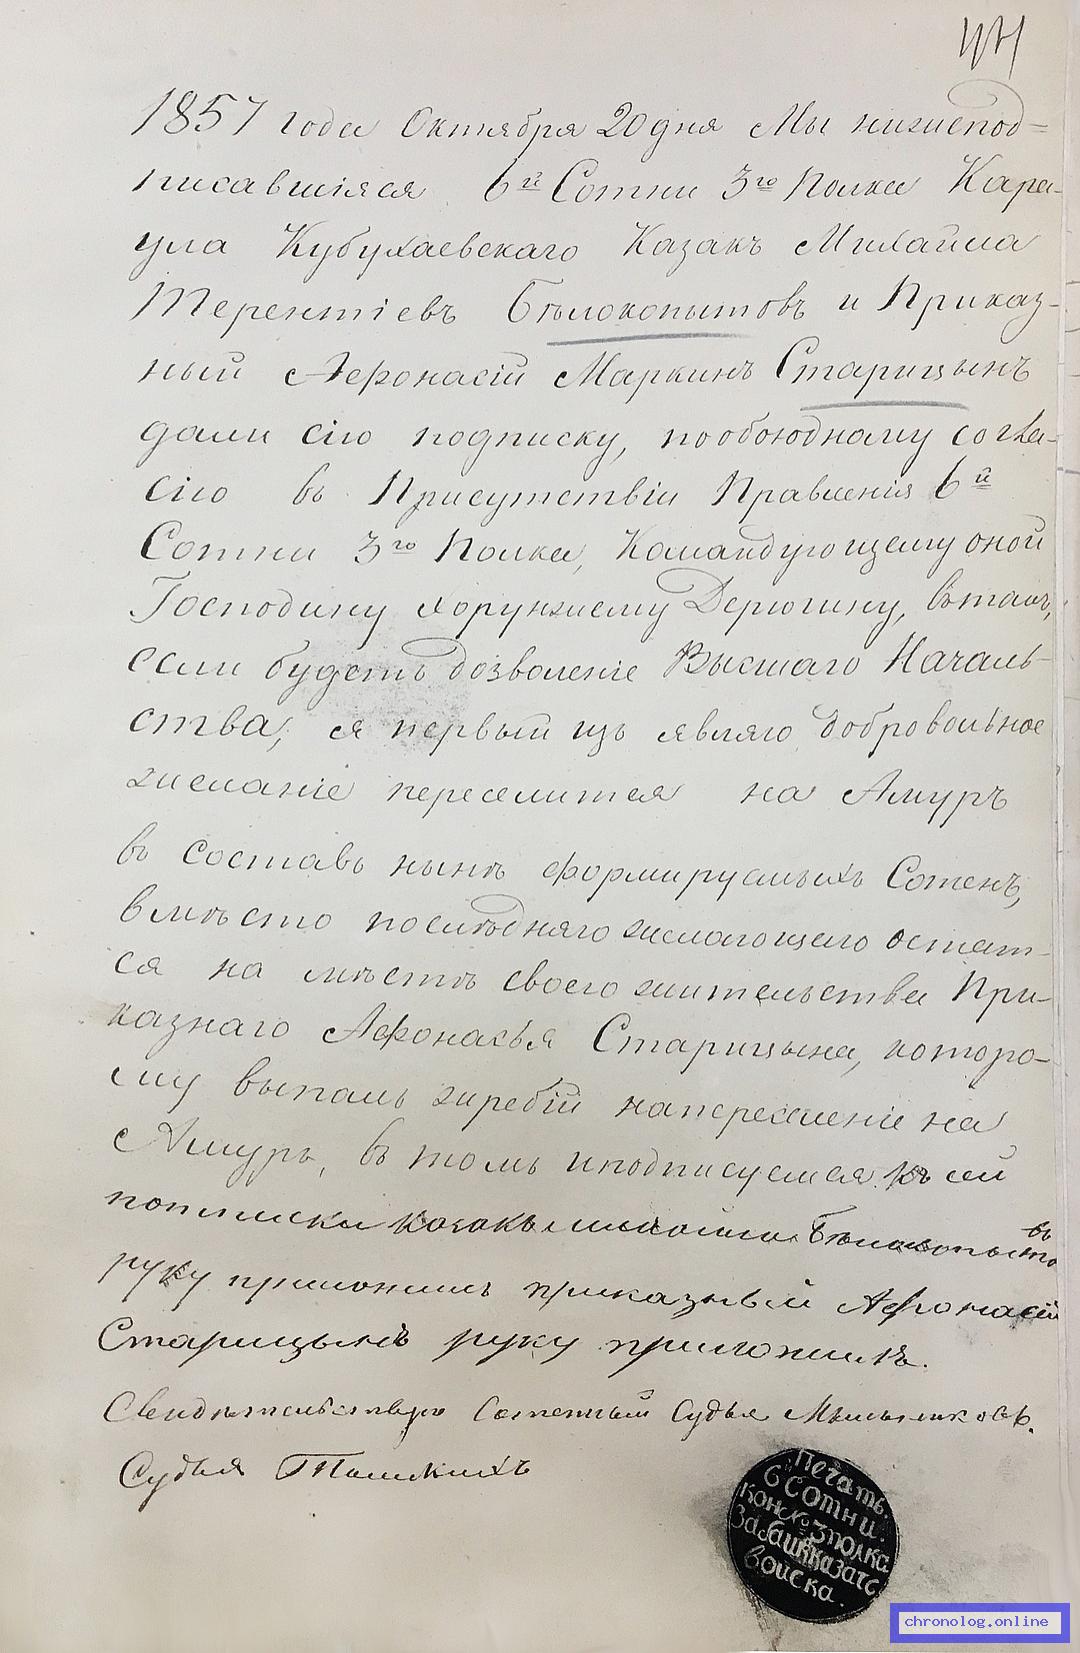 1857 года Октября 20 дня Мы нижепод=
писавшіяся 6й Сотни 3го Полка Кара-
ула Кубухаевскаго Казакъ Михайла
Терентіевъ Бѣлокопытовъ и Приказ-
ный Афонасій Маркинъ Старицынъ
дали сію подписку, пообоюдному согла-
сію въ Присутствіи Правленія 6й
Сотни 3го Полка, Командующему оной
Господину Хорунжему Дерюгину, втомъ,
если будетъ дозволеніе Высшаго Началь-
ства, я первый изъ являю добровольное
желаніе переселится на Амуръ
въ составъ нынѣ формируемыхъ Сотенъ,
вмѣсто послѣдняго желающего остат-
ся на мѣстѣ своего жительства При-
казнаго Афонасья Старицына, которо-
му выпалъ жребій напереселеніе на
Амуръ, въ томъ иподписуемся къ сей
потписки козакъ михайла Бѣлакопытовъ
руку приложилъ приказный Афонасій
Старицынъ руку приложилъ.
Свидѣтельствую Сотенный Судья Мыльниковъ.
Судья
Печать
6 Сотни.
конно 3 полка
Забайк казач
войска.
chronolog.online